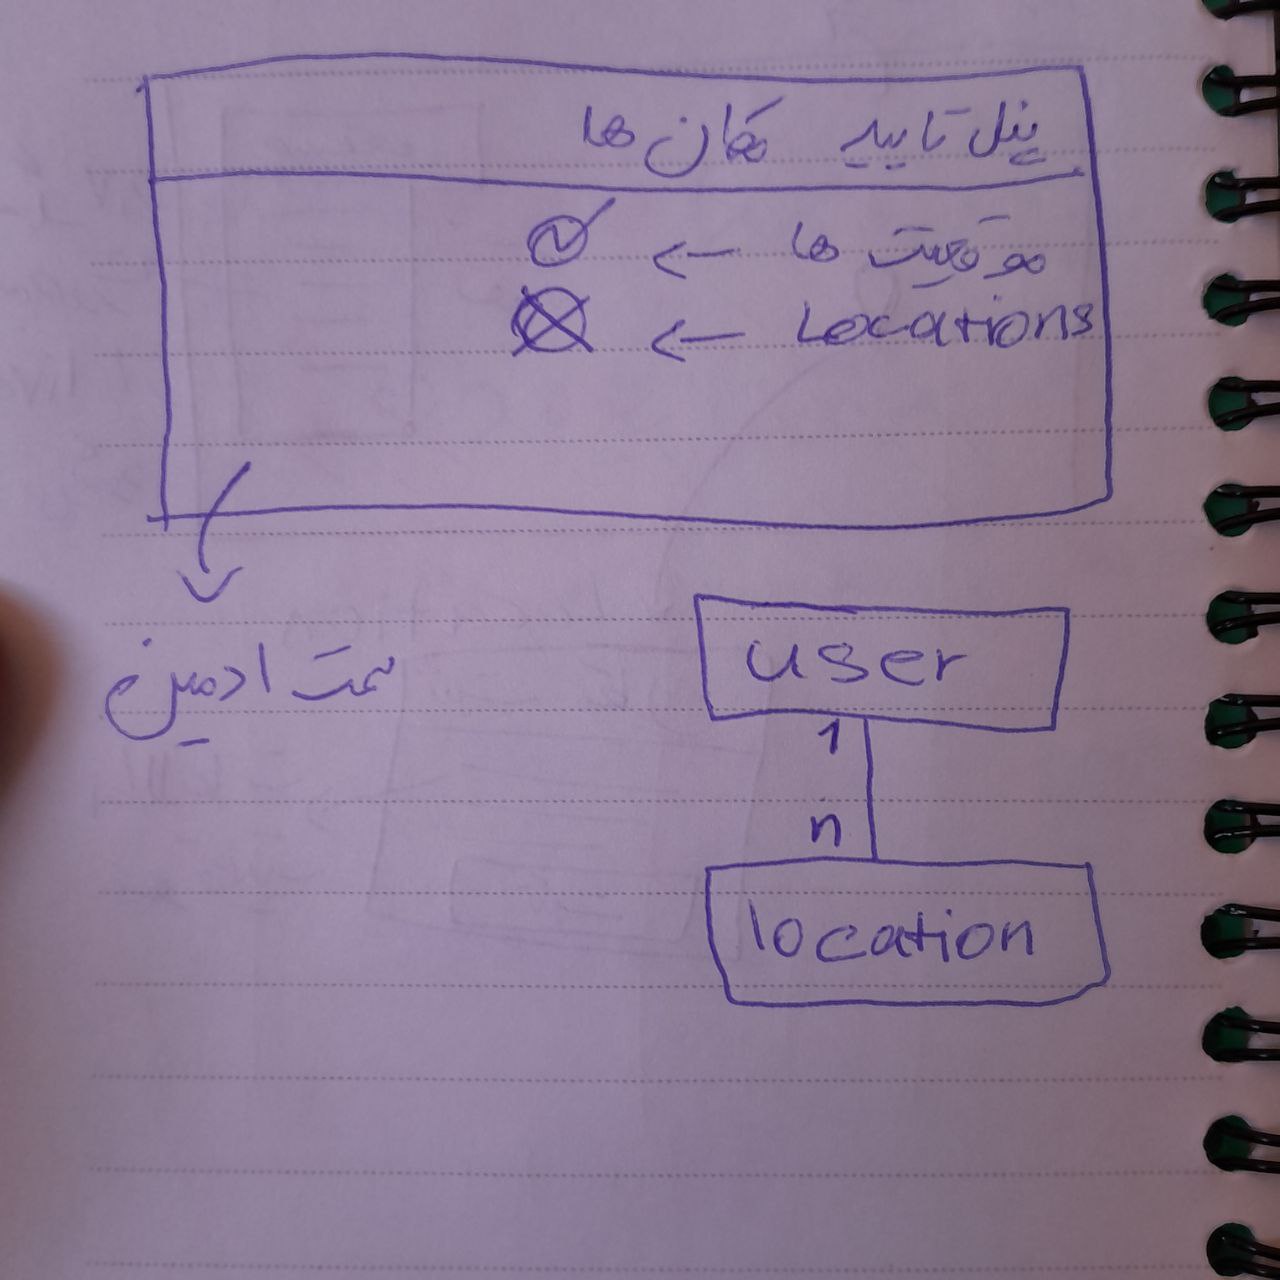 پنل تایید مکان ها
موقعیت ها ←
Locations ←
سمت ادمین
user
1
n
location